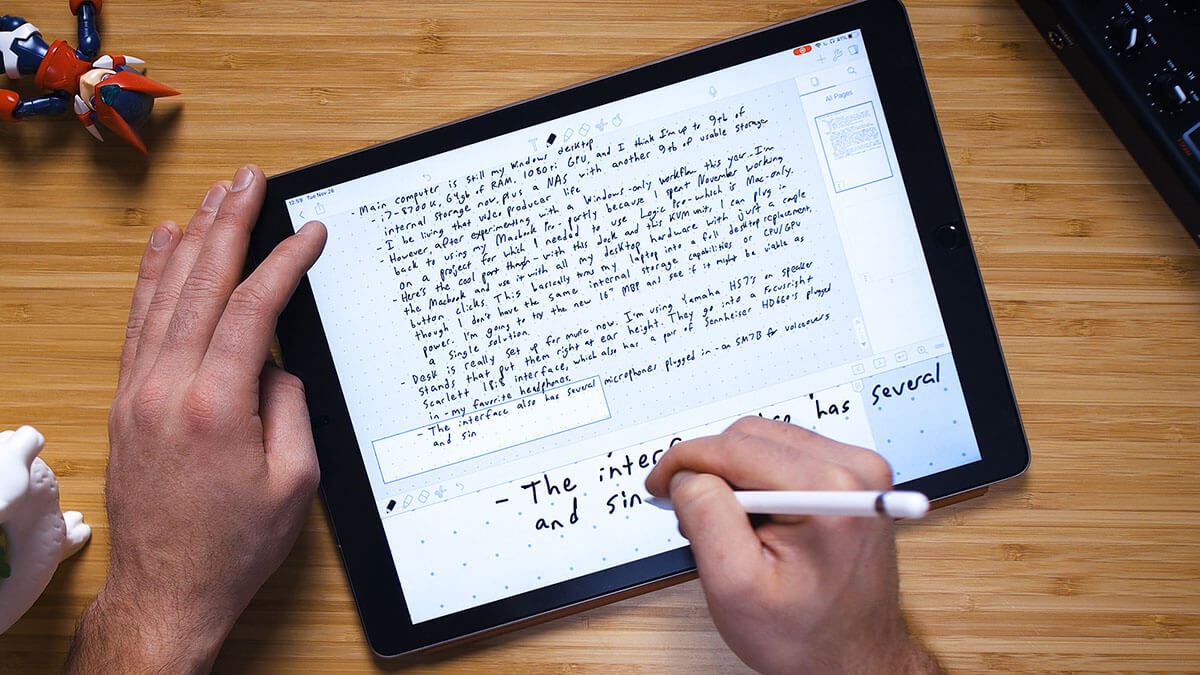 12:59 Tue Nov 26
41%
All Pages
Main computer is still my Windows desktop
- i7-8700K, 64gb of RAM, 1080ti GPU, and I think I'm up to 9tb of
internal storage now, plus a NAS with another 9tb of usable storage
- I be living that video producer life
However, after experimenting with a Windows-only workflow this year, I'm
back to using my Macbook Pro - partly because I spent November working
on a project for which I needed to use Logic Pro - which is Mac-only.
- Here's the cool part though - with this dock and this KVM unit, I can plug in
the Macbook and use it with all my desktop hardware with just a couple
button clicks. This basically turns my laptop into a full desktop replacement,
though I don't have the same internal storage capabilities or CPU/GPU
power. I'm going to try the new 16" MBP and see if it might be viable as
a single solution.
- Desk is really set up for music now. I'm using Yamaha HS7's on speaker
stands that put them right at ear height. They go into a Focusright
Scarlett 18i8 interface, which also has a pair of Sennheiser HD660-s plugged
in - my favorite headphones.
- The interface also has several microphones plugged in - an SM7B for voiceovers
and sin
- The inter has several
and sin